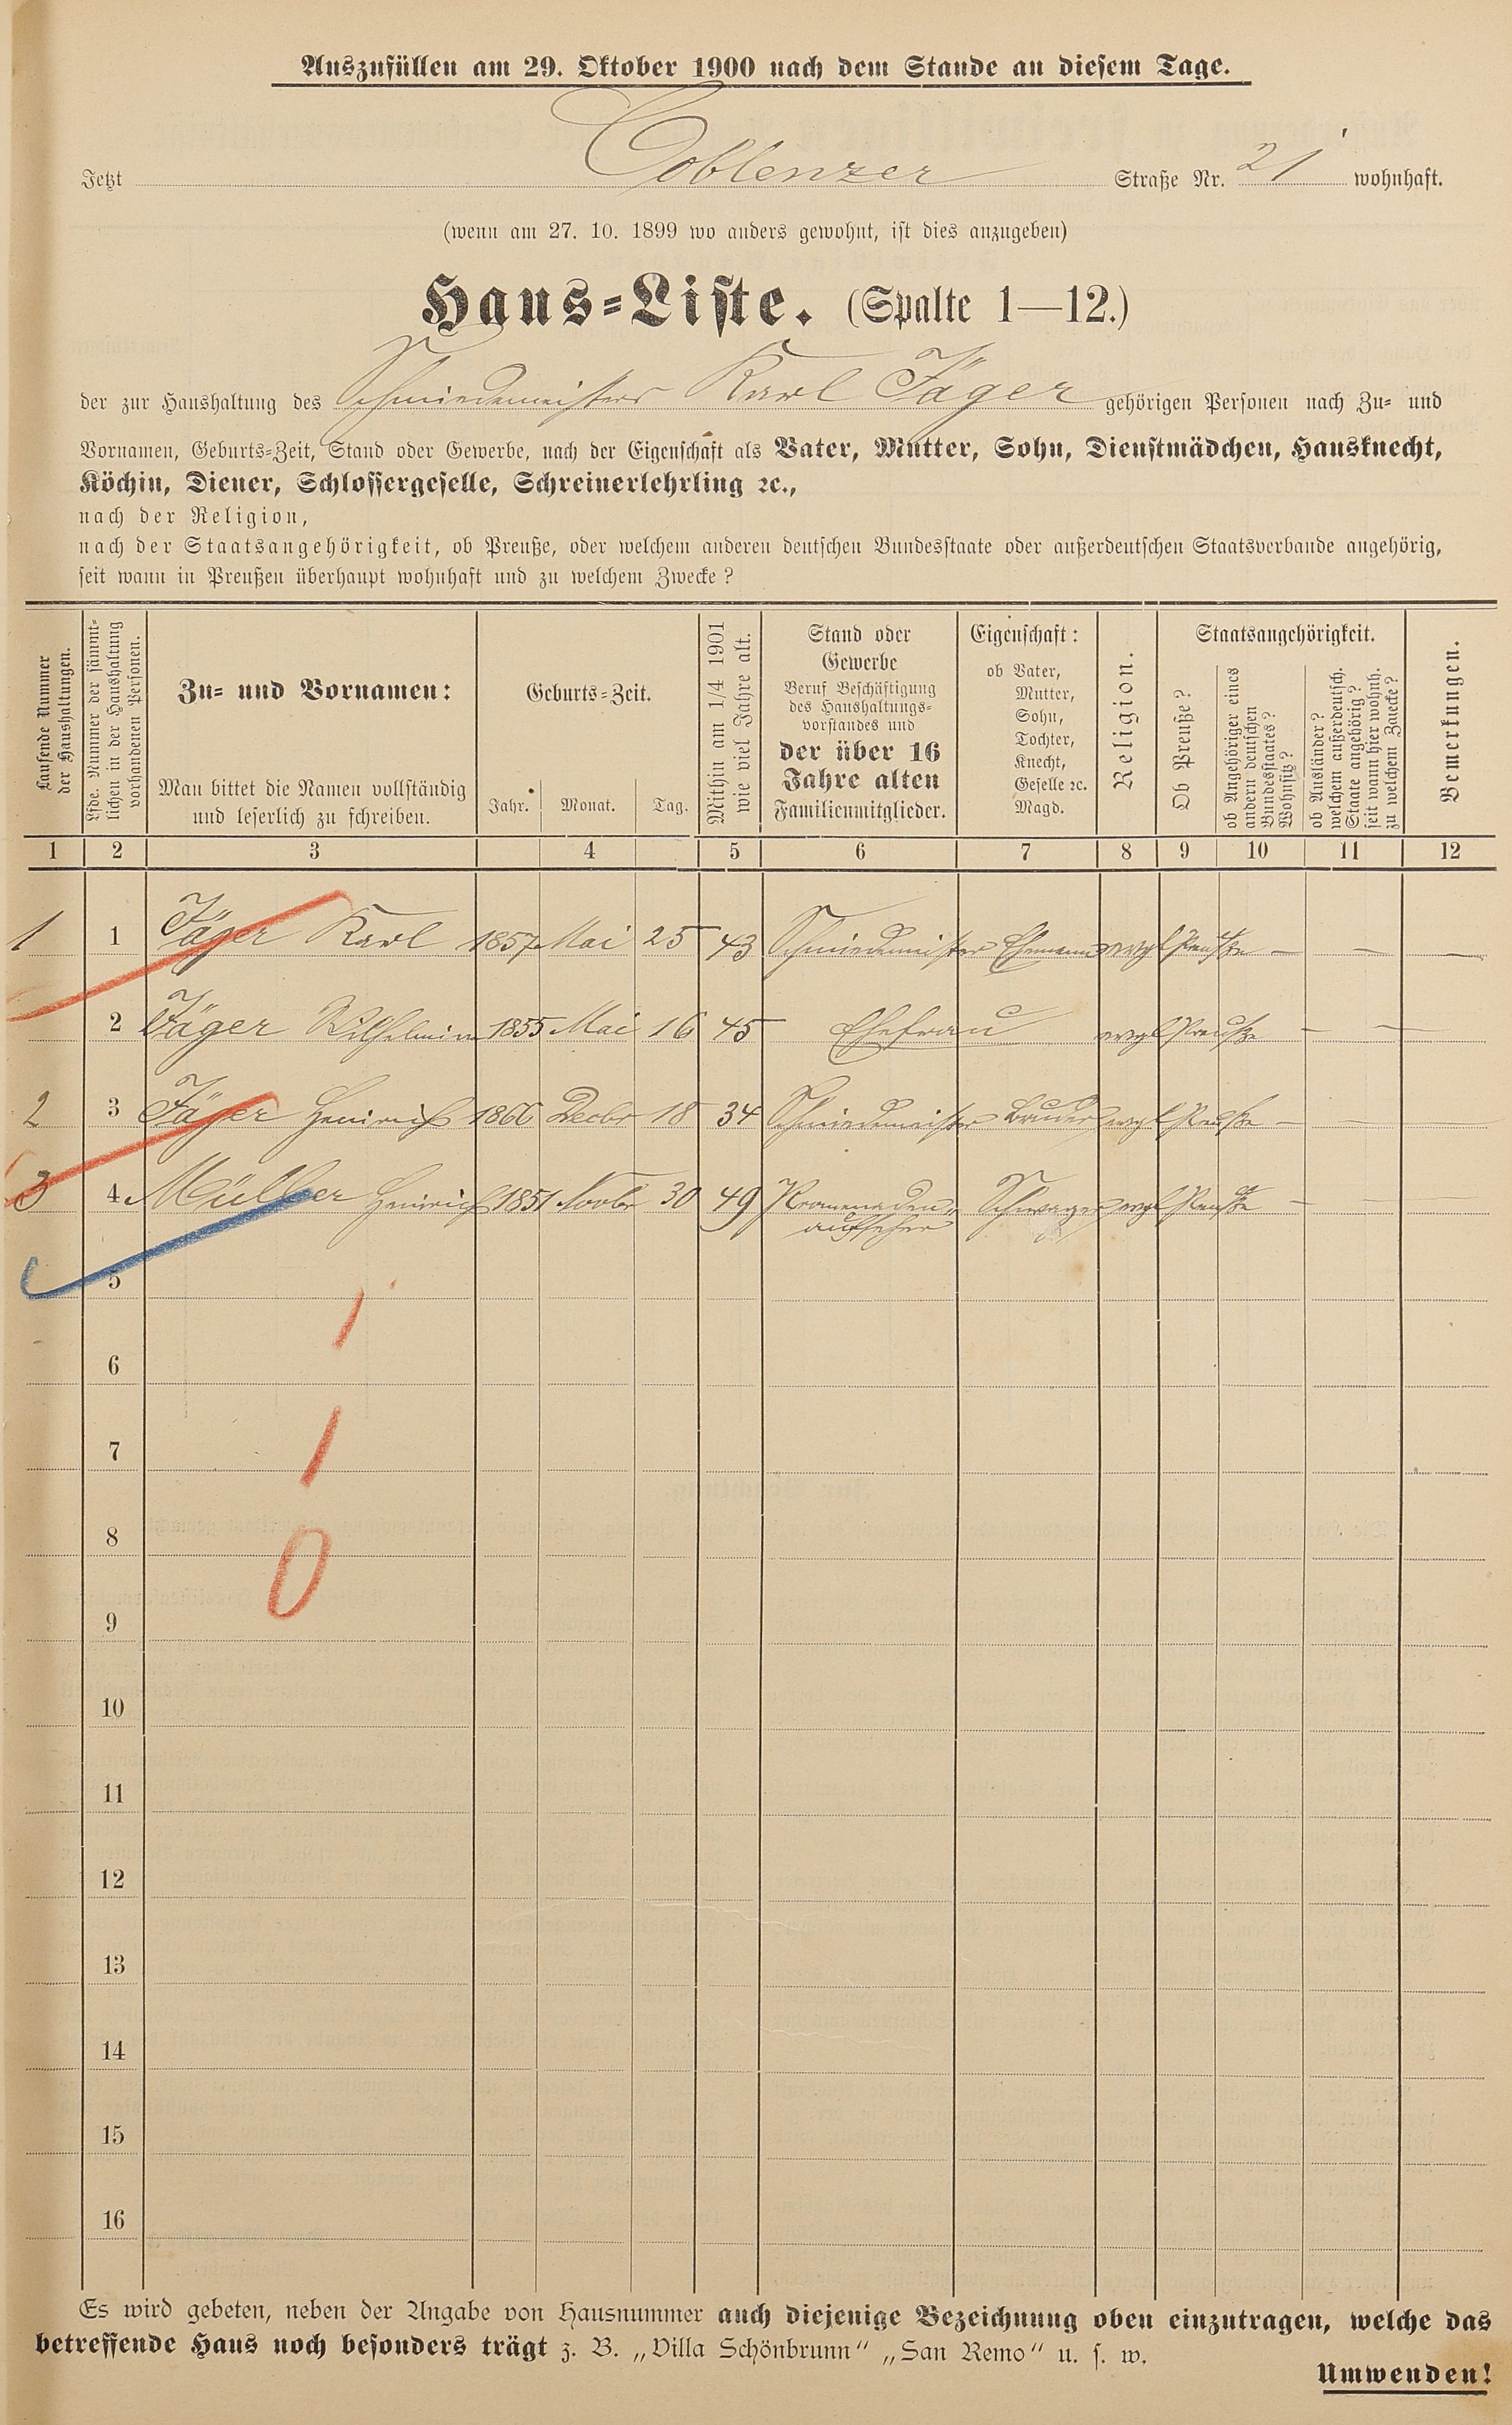 Auszufüllen am 29. Oktober 1900 nach dem Stande an diesem Tage.
Jetzt Coblenzer Straße Nr. 21 wohnhaft.
(wenn am 27. 10. 1899 wo anders gewohnt, ist dies anzugeben)
Haus-Liste. (Spalte 1—12.)
der zur Haushaltung des Schmiedemeisters Karl Jäger gehörigen Personen nach Zu- und
Vornamen, Geburts-Zeit, Stand oder Gewerbe, nach der Eigenschaft als Vater, Mutter, Sohn, Dienstmädchen, Hausknecht,
Köchin, Diener, Schlossergeselle, Schreinerlehrling ꝛc.,
nach der Religion,
nach der Staatsangehörigkeit, ob Preuße, oder welchem anderen deutschen Bundesstaate oder außerdeutschen Staatsverbande angehörig,
seit wann in Preußen überhaupt wohnhaft und zu welchem Zwecke?
Laufende Nummer
der Haushaltungen.
Lfde. Nummer der sämmt-
lichen in der Haushaltung
vorhandenen Personen.
Zu- und Vornamen:
Man bittet die Namen vollständig
und leserlich zu schreiben.
Geburts-Zeit.
Jahr. Monat. Tag.
Mithin am 1/4 1901
wie viel Jahre alt.
Stand oder
Gewerbe
Beruf Beschäftigung
des Haushaltungs-
vorstandes und
der über 16
Jahre alten
Familienmitglieder.
Eigenschaft:
ob Vater,
Mutter,
Sohn,
Tochter,
Knecht,
Geselle ꝛc.
Magd.
Religion.
Staatsangehörigkeit.
Ob Preuße?
ob Angehöriger eines
andern deutschen
Bundesstaates?
Wohnsitz?
ob Ausländer?
welchem außerdeutsch.
Staate angehörig?
seit wann hier wohnh.
zu welchem Zwecke?
Bemerkungen.
1 2 3 4 5 6 7 8 9 10 11 12
1 1 Jäger Karl 1857 Mai 25 43 Schmiedemeister Ehemann evgl Preuße — — —
2 Jäger Wilhelmine 1855 Mai 16 45 Ehefrau evgl Preuße — — —
2 3 Jäger Heinrich 1866 Decbr 18 34 Schmiedemeister Bruder evgl Preuße — — —
3 4 Müller Heinrich 1851 Novbr 30 49 Promenaden- Schwager evgl Preuße — — —
aufseher
5
1
6
7
1
8
0
9
10
11
12
13
14
15
16
Es wird gebeten, neben der Angabe von Hausnummer auch diejenige Bezeichnung oben einzutragen, welche das
betreffende Haus noch besonders trägt z. B. „Villa Schönbrunn“ „San Remo“ u. s. w.
Umwenden!